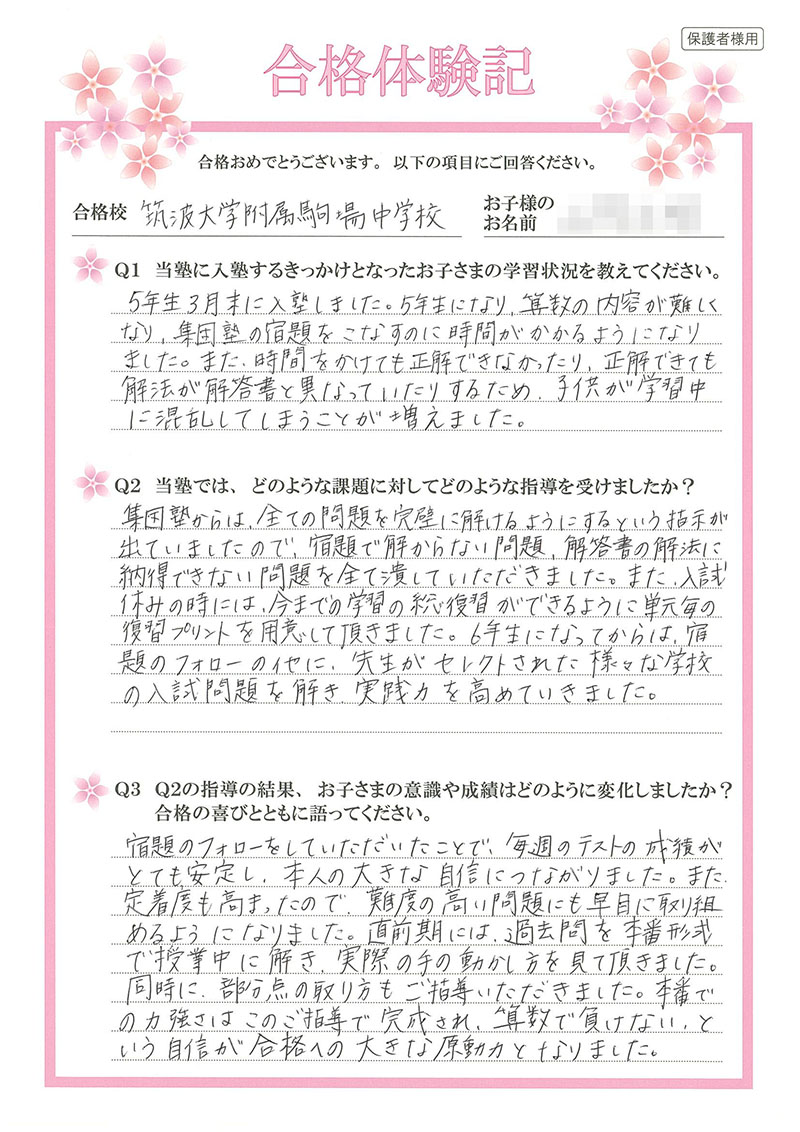 保護者様用
合格体験記
合格おめでとうございます。以下の項目にご回答ください。
合格校 筑波大学附属駒場中学校
お子様の
お名前
Q1 当塾に入塾するきっかけとなったお子さまの学習状況を教えてください。
5年生3月末に入塾しました。5年生になり、算数の内容が難しく
なり、集団塾の宿題をこなすのに時間がかかるようになり
ました。また、時間をかけても正解できなかったり、正解できても
解法が解答書と異なっていたりするため、子供が学習中
に混乱してしまうことが増えました。
Q2 当塾では、どのような課題に対してどのような指導を受けましたか？
集団塾からは、全ての問題を完璧に解けるようにするという指示が
出ていましたので、宿題で解からない問題、解答書の解法に
納得できない問題を全て潰していただきました。また、入試
休みの時には、今までの学習の総復習ができるように単元毎の
復習プリントを用意して頂きました。6年生になってからは、宿
題のフォローの他に、先生がセレクトされた様々な学校
の入試問題を解き、実践力を高めていきました。
Q3 Q2の指導の結果、お子さまの意識や成績はどのように変化しましたか？
合格の喜びとともに語ってください。
宿題のフォローをしていただいたことで、毎週のテストの成績が
とても安定し、本人の大きな自信につながりました。また、
定着度も高まったので、難度の高い問題にも早目に取り組
めるようになりました。直前期には、過去問を本番形式
で授業中に解き、実際の手の動かし方を見て頂きました。
同時に、部分点の取り方もご指導いただきました。本番で
の力強さはこのご指導で完成され、算数で負けない、と
いう自信が合格への大きな原動力となりました。